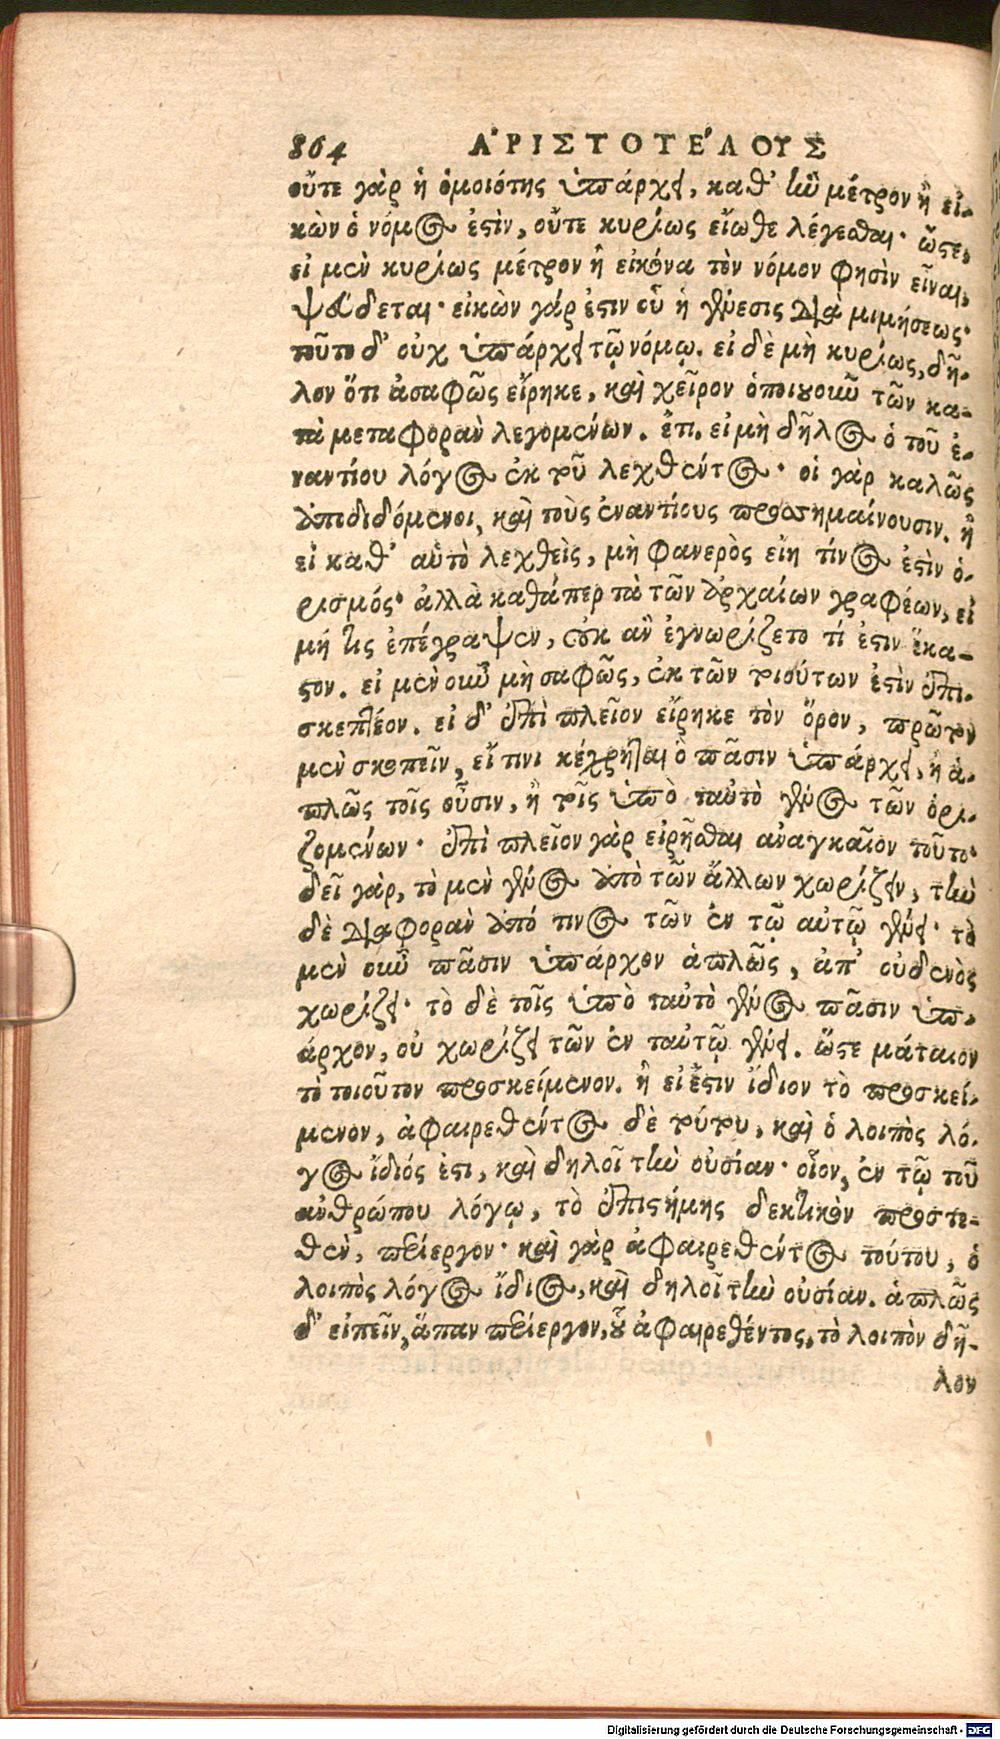 864 ἈΡΙΣΤΟΤΈΛΟΥΣ
οὔτε γὰρ ἡ ὁμοιότης ὑπάρχει, καθ’ ἣν μέτρον ἢ εἰ-
κὼν ὁ νόμος ἐστὶν, οὔτε κυρίως εἴωθε λέγεσθαι· ὥστε,
εἰ μὲν κυρίως μέτρον ἢ εἰκόνα τὸν νόμον φησὶν εἶναι,
ψεύδεται· εἰκὼν γάρ ἐστιν οὗ ἡ γένεσις διὰ μιμήσεως·
τοῦτο δ’ οὐχ ὑπάρχει τῷ νόμῳ. εἰ δὲ μὴ κυρίως, δῆ-
λον ὅτι ἀσαφῶς εἴρηκε, καὶ χεῖρον ὁποιουοῦν τῶν κα-
τὰ μεταφορὰν λεγομένων. ἔτι. εἰ μὴ δῆλος ὁ τοῦ ἐ-
ναντίου λόγος ἐκ τοῦ λεχθέντος· οἱ γὰρ καλῶς
ἀποδιδόμενοι, καὶ τοὺς ἐναντίους προσημαίνουσιν. ἢ
εἰ καθ’ αὑτὸ λεχθεὶς, μὴ φανερὸς εἴη τίνος ἐστὶν ὁ-
ρισμός· ἀλλὰ καθάπερ τὰ τῶν ἀρχαίων γραφέων, εἰ
μή τις ἐπέγραψεν, οὐκ ἂν ἐγνωρίζετο τί ἐστιν ἕκα-
στον. εἰ μὲν οὖν μὴ σαφῶς, ἐκ τῶν τοιούτων ἐστὶν ἐπι-
σκεπτέον. εἰ δ’ ἐπὶ πλεῖον εἴρηκε τὸν ὅρον, πρῶτον
μὲν σκοπεῖν, εἴ τινι κέχρηται ὃ πᾶσιν ὑπάρχει, ἢ ἁ-
πλῶς τοῖς οὖσιν, ἢ τοῖς ὑπὸ ταὐτὸ γένος τῶν ὁρι-
ζομένων· ἐπὶ πλεῖον γὰρ εἰρῆσθαι ἀναγκαῖον τοῦτο·
δεῖ γὰρ, τὸ μὲν γένος ἀπὸ τῶν ἄλλων χωρίζειν, τὴν
δὲ διαφορὰν ἀπό τινος τῶν ἐν τῷ αὐτῷ γένει· τὸ
μὲν οὖν πᾶσιν ὑπάρχον ἁπλῶς, ἀπ’ οὐδενὸς
χωρίζει· τὸ δὲ τοῖς ὑπὸ ταὐτὸ γένος πᾶσιν ὑπ-
άρχον, οὐ χωρίζει τῶν ἐν ταὐτῷ γένει. ὥστε μάταιον
τὸ τοιοῦτον προσκείμενον. ἢ εἰ ἔστιν ἴδιον τὸ προσκεί-
μενον, ἀφαιρεθέντος δὲ τούτου, καὶ ὁ λοιπὸς λό-
γος ἴδιός ἐστι, καὶ δηλοῖ τὴν οὐσίαν· οἷον, ἐν τῷ τοῦ
ἀνθρώπου λόγῳ, τὸ ἐπιστήμης δεκτικὸν προστε-
θὲν, περίεργον· καὶ γὰρ ἀφαιρεθέντος τούτου, ὁ
λοιπὸς λόγος ἴδιος, καὶ δηλοῖ τὴν οὐσίαν. ἁπλῶς
δ’ εἰπεῖν, ἅπαν περίεργον, οὗ ἀφαιρεθέντος, τὸ λοιπὸν δῆ-
λον
Digitalisierung gefördert durch die Deutsche Forschungsgemeinschaft - DFG